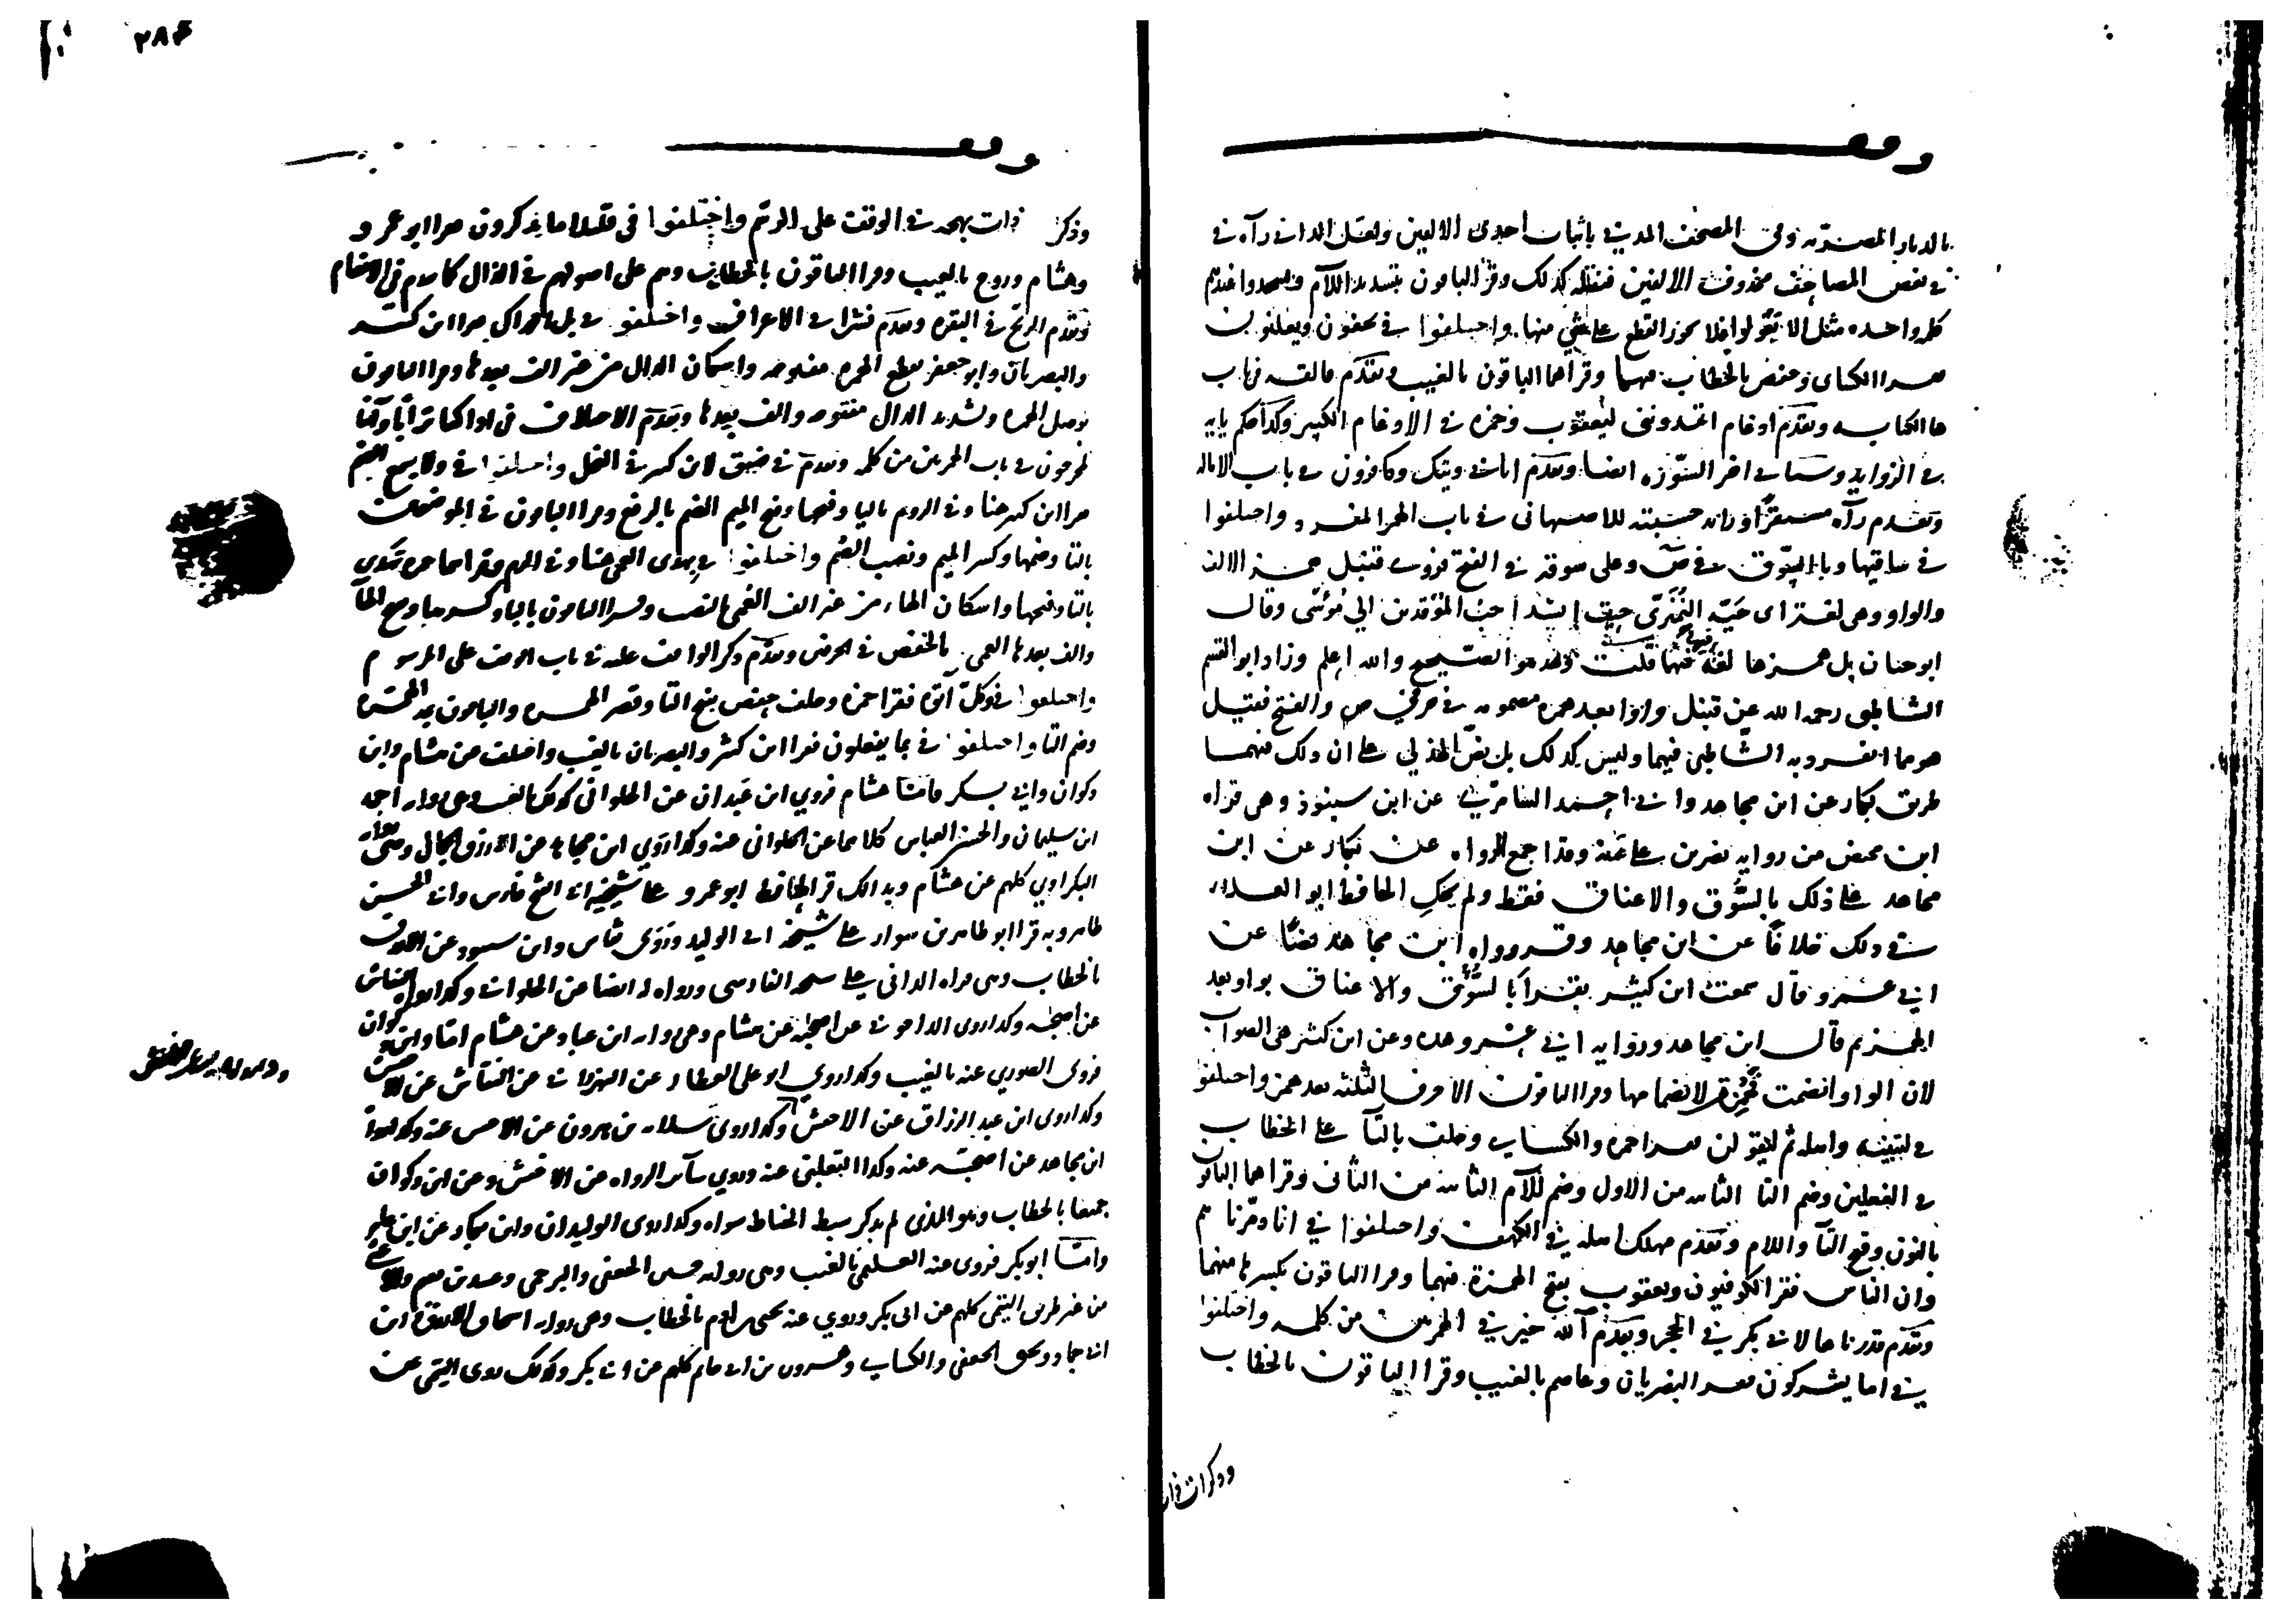 وقف
بالديار المصرية وفي المصحف المديني باثبات احدى الالفين ولعل الداني رآه في
في بعض المصاحف محذوف الالفين فنقله كذلك وقرا الباقون بتشديد اللام ويسجدوا عندهم
كلمة واحدة مثل الا تعولوا فلا يجوز القطع على شي منها واختلفوا في يخفون ويعلنون
فقرا الكسائي وحفص بالخطاب فيهما وقراهما الباقون بالغيب وتقدم فالقه في باب
ها الكناية وتقدم ادغام اتمدونني ليعقوب وحمزة في الادغام الكبير وكذا حكم يايه
في الزوايد وسياتي اخر السورة ايضا وتقدم اماله اتيك وكافرين في باب الامالة
وتقدم رآه مستقرا وراته حسبته للاصبهاني في باب الهمز المفرد واختلفوا
في ساقيها وبالسوق في ص وعلى سوقه في الفتح فروى قنبل همز الالف
والواو وهي لغة ابي حية النميري حيث انشد احب المؤقدين الي مؤسى وقال
ابو حيان بل همزها لغة فيها قلت وهذا هو الصحيح والله اعلم وزاد ابو القسم
الشاطبي رحمه الله عن قنبل واوا بعد همزة مضمومة في حرفي ص والفتح فقيل
هو مما انفرد به الشاطبي فيهما وليس كذلك بل نص الهذلي على ان ذلك فيهما
طريق بكار عن ابن مجاهد وابي احمد السامري عن ابن شنبوذ وهي قراه
ابن محيصن من رواية نصر بن علي عنه وقد اجمع الرواه عن بكار عن ابن
مجاهد على ذلك بالسؤق والاعناق فقط ولم يحك الحافظ ابو العلاء
في ذلك خلافا عن ابن مجاهد وقد رواه ابن مجاهد نصا عن
ابي عمرو قال سمعت ابن كثير يقرا بالسؤق والاعناق بواو بعد
الهمزة ثم قال ابن مجاهد ورواية ابي عمرو هذه وعن ابن كثير هي الصواب
لان الواو انضمت فهمزت لانضمامها وقرا الباقون الاحرف الثلثة بغير همز واختلفوا
في لنبيتنه واهله ثم لنقولن فقرا حمزة والكسائي وخلف بالتا على الخطاب
في الفعلين وضم التا الثانية من الاول وضم اللام الثانية من الثاني وقراهما الباقون
بالنون وفتح التا واللام وتقدم مهلك اهله في الكهف واختلفوا في انا دمرنا هم
وان الناس فقرا الكوفيون ويعقوب بفتح الهمزة فيهما وقرا الباقون بكسرها منهما
وتقدم قدرناها لابي بكر في الحجر وتقدم آلله خير في الهمزتين من كلمة واختلفوا
في اما يشركون فقرا البصريان وعاصم بالغيب وقرا الباقون بالخطاب
وذكر ذات
٢٨٤
وقف
وذكر ذات بهجة في الوقف على الرسم واختلفوا في قليلا ما يذكرون فقرا ابو عمرو
وهشام وروح بالغيب وقرا الباقون بالخطاب وهم على اصولهم في الذال كما تقدم في الانعام
وتقدم الريح في البقرة وتقدم نشرا في الاعراف واختلفوا في بل ادارك فقرا ابن كثير
والبصريان وابو جعفر بقطع الهمزة مفتوحة واسكان الدال من غير الف بعدها وقرا الباقون
بوصل الهمزة وتشديد الدال مفتوحة والف بعدها وتقدم الاختلاف في اذا كنا ترابا وآئنا
لمخرجون في باب الهمزتين من كلمة وتقدم في ضيق لابن كثير في النحل واختلفوا في ولا يسمع الصم
فقرا ابن كثير هنا وفي الروم باليا وفتحها وفتح الميم الصم بالرفع وقرا الباقون في الموضعين
بالتا وضمها وكسر الميم ونصب الصم واختلفوا في بهادي العمي هنا وفي الروم فقراهما حمزة تهدي
بالتا وفتحها واسكان الهاء من غير الف العمي بالنصب وقرا الباقون بالباء وكسرها وفتح الهآ
والف بعدها العمي بالخفض في الحرفين وتقدم ذكر الوقف عليه في باب الوقف على المرسوم
واختلفوا في وكل آتوه فقرا حمزة وخلف وحفص بفتح التا وقصر الهمزة والباقون بمد الهمزة
وضم التا واختلفوا في بما يفعلون فقرا ابن كثير والبصريان بالغيب واختلف عن هشام وابن
ذكوان وابي بكر فامّا هشام فروى ابن عبدان عن الحلواني كذلك بالغيب وهي رواية احمد
ابن سليمان والحسن العباس كلاهما عن الحلواني عنه وكذا روى ابن مجاهد عن الازرق الجمال
البكراوي كلهم عن هشام وبذلك قرا الحافظ ابو عمرو على شيخيه ابي الفتح فارس وابي الحسن
طاهر وبه قرا ابو طاهر بن سوار على شيخه ابي الوليد وروى النقاش وابن شنبوذ عن الازرق
بالخطاب وهي قراة الداني على شيخه الفارسي ورواه له ايضا عن الحلواني وكذا رواه النقاش
عن اصحابه وكذا روى الداجوني عن اصحابه عن هشام وهي رواية ابن عباد عن هشام امّا وابن ذكوان
فروى الصوري عنه بالغيب وكذا روى ابو على العطار عن النهرواني عن النقاش عن الاخفش
وكذا روى ابن عبد الرزاق عن الاخفش وكذا روى سلامة بن هرون عن الاخفش عنه وكذا رواه
ابن مجاهد عن اصحابه عنه وكذا التغلبي عنه وروى سآئر الرواه عن الاخفش وعن ابن ذكوان
جميعا بالخطاب وهو الذي لم يذكر سبط الخياط سواه وكذا روى الوليدان وابن بكار عن ابن عامر
وامّا ابو بكر فروى عنه العليمي بالغيب وهي رواية حسين الجعفي والبرجمي وعبيد بن نعيم والاعشى
من غير طريق التيمي كلهم عن ابي بكر وروى عنه يحيى بن ادم بالخطاب وهي رواية اسحاق الازرق وابن
ابي حماد ويحيى الجعفي والكسائي وهرون بن ابي حاتم كلهم عن ابي بكر وكذلك روى التيمي عن